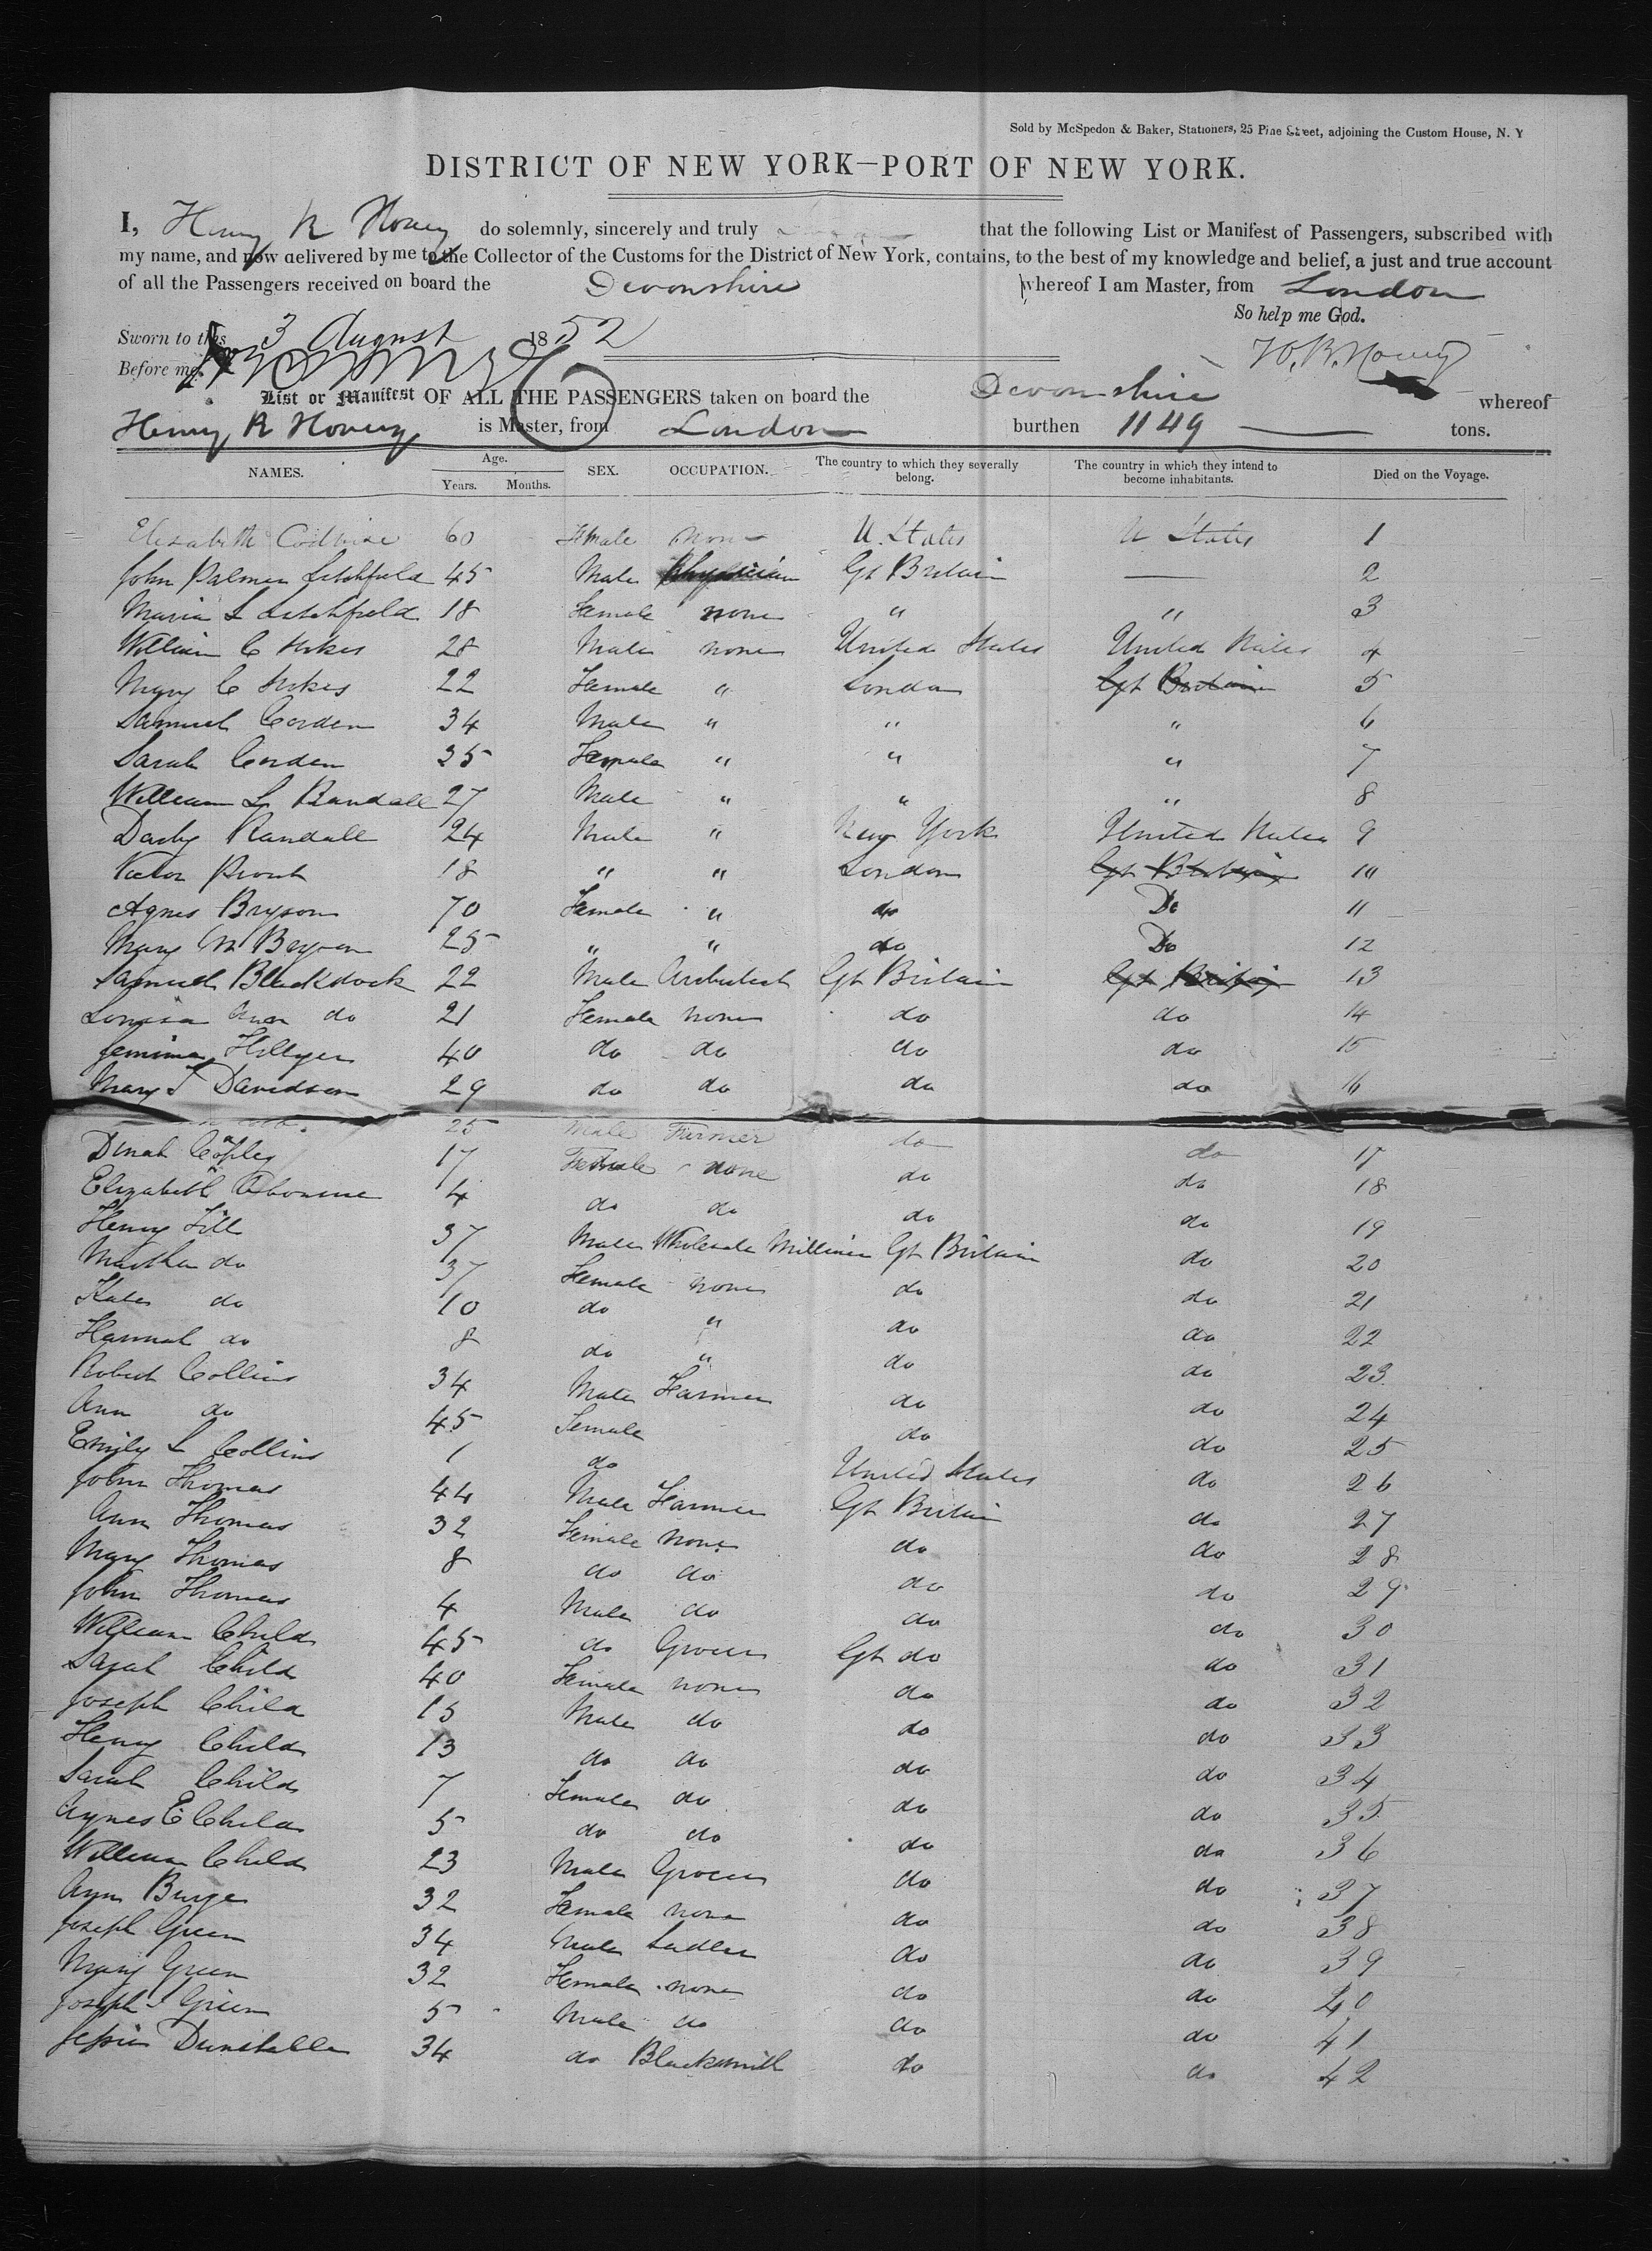 Sold by McSpedon & Baker, Stationers, 25 Pine Street, adjoining the Custom House, N. Y
DISTRICT OF NEW YORK—PORT OF NEW YORK.
I, Henry R Hovey do solemnly, sincerely and truly that the following List or Manifest of Passengers, subscribed with
my name, and now delivered by me to the Collector of the Customs for the District of New York, contains, to the best of my knowledge and belief, a just and true account
of all the Passengers received on board the Devonshire whereof I am Master, from London
So help me God.
Sworn to this 3 August 1852
H. R. Hovey
Before me,
List or Manifest OF ALL THE PASSENGERS taken on board the Devonshire whereof
Henry R Hovey is Master, from London burthen 1149 tons.
NAMES. Age. Years. Months. SEX. OCCUPATION. The country to which they severally belong. The country in which they intend to become inhabitants. Died on the Voyage.
Elizabeth 60 Female None U. States U States 1
John Palmer Litchfield 45 Male Physician Gt Britain — 2
Maria L Litchfield 18 Female none " " 3
William C Stokes 28 Male none United States United States 4
Mary C Stokes 22 Female " London Gt Britain 5
Samuel Corden 34 Male " " " 6
Sarah Corden 35 Female " " " 7
William L Randall 27 Male " " " 8
Darby Randall 24 Male " New York United States 9
Victor Prout 18 " " London Gt Britain 10
Agnes Bryson 70 Female " do Do 11
Mary M Bryson 25 " " do Do 12
Samuel Blackdock 22 Male Architect Gt Britain Gt Britain 13
Louisa Ann do 21 Female none do do 14
Jemima Hillyer 40 do do do do 15
Mary T Davidson 29 do do do do 16
25 Male Farmer do do 17
Dinah Copley 17 Female none do do 18
Elizabeth Obourne 4 do do do do 19
Henry Hill 37 Male Wholesale Milliner Gt Britain do 20
Martha do 37 Female none do do 21
Kate do 10 do " do do 22
Hannah do 8 do " do do 23
Robert Collins 34 Male Farmer do do 24
Ann do 45 Female do do 25
Emily L Collins 1 do United States do 26
John Thomas 44 Male Farmer Gt Britain do 27
Ann Thomas 32 Female none do do 28
Mary Thomas 8 do do do do 29
John Thomas 4 Male do do do 30
William Child 45 do Grocer Gt do do 31
Sarah Child 40 Female none do do 32
Joseph Child 15 Male do do do 33
Henry Child 13 do do do do 34
Sarah Child 7 Female do do do 35
Agnes E Child 5 do do do do 36
William Child 23 Male Grocer do do 37
Ann Burge 32 Female none do do 38
Joseph Green 34 Male Sadler do do 39
Mary Green 32 Female none do do 40
Joseph Green 5 Male do do do 41
Jessie Dunstable 34 do Blacksmith do do 42